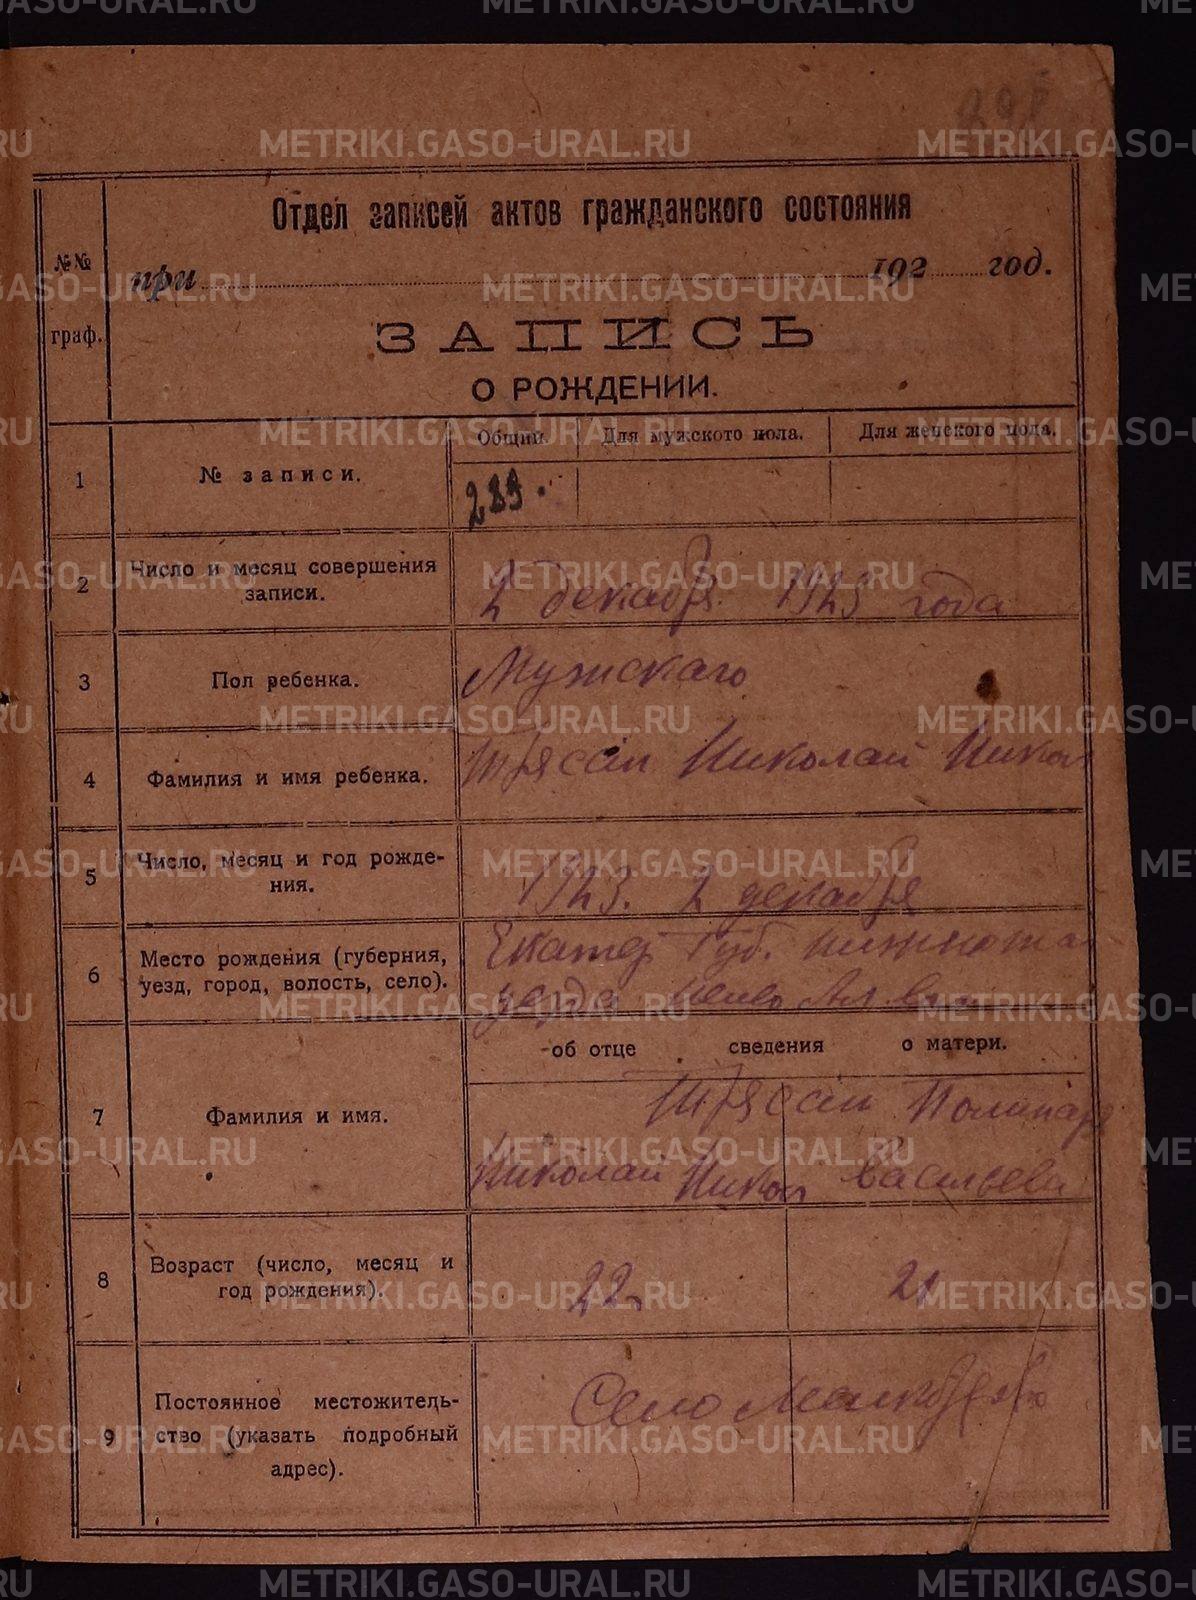 Отдел записей актов гражданского состояния
№№ граф.
при 192 год.
ЗАПИСЬ
О РОЖДЕНИИ.
Общий. Для мужского пола. Для женского пола.
1 № записи. 289.
2 Число и месяц совершения записи. 2 декабря 1923 года
3 Пол ребенка. Мужскаго
4 Фамилия и имя ребенка. Николай Никол
5 Число, месяц и год рождения. 1923. 2 декабря
6 Место рождения (губерния, уезд, город, волость, село). Екатер Губ.
уезда
об отце сведения о матери.
7 Фамилия и имя.
Николай Никол Васильева
8 Возраст (число, месяц и год рождения). 22 21
9 Постоянное местожительство (указать подробный адрес). Село
METRIKI.GASO-URAL.RU